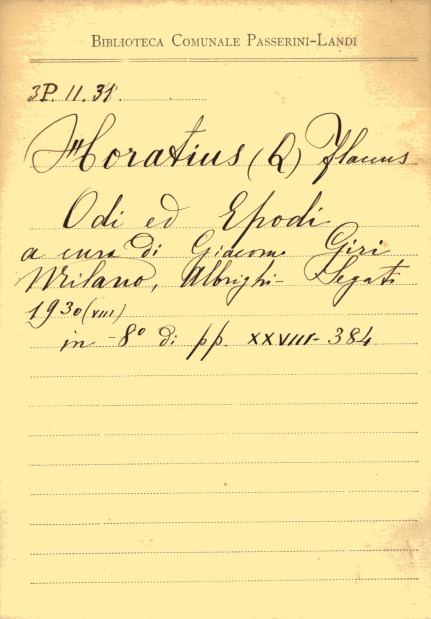 BIBLIOTECA COMUNALE PASSERINI-LANDI
3P. II. 31.
Horatius (Q) Flaccus
Odi ed Epodi
a cura di Giacomo Giri
Milano, Albrighi-Segati
1930 (VIII)
in -8º di pp. XXVIII-384